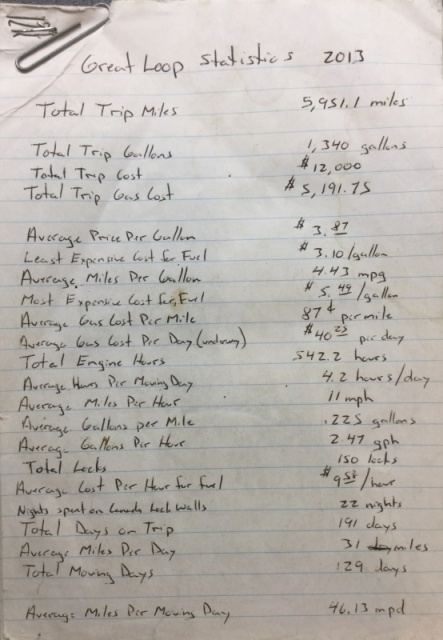 Great Loop Statistics 2013
Total Trip Miles 5,951.1 miles
Total Trip Gallons 1,340 gallons
Total Trip Cost $12,000
Total Trip Gas Cost $5,191.75
Average Price Per Gallon $3.87
Least Expensive Cost for Fuel $3.10/gallon
Average Miles Per Gallon 4.43 mpg
Most Expensive Cost for Fuel $5.49/gallon
Average Gas Cost Per Mile 87¢ per mile
Average Gas Cost Per Day (underway) $40.25 per day
Total Engine Hours 542.2 hours
Average Hours Per Moving Day 4.2 hours/day
Average Miles Per Hour 11 mph
Average Gallons per Mile .225 gallons
Average Gallons Per Hour 2.47 gph
Total Locks 150 locks
Average Cost Per Hour for fuel /hour
Nights spent on Canada Lock Walls 22 nights
Total Days on Trip 191 days
Average Miles Per Day 31 miles
Total Moving Days 129 days
Average Miles Per Moving Day 46.13 mpd